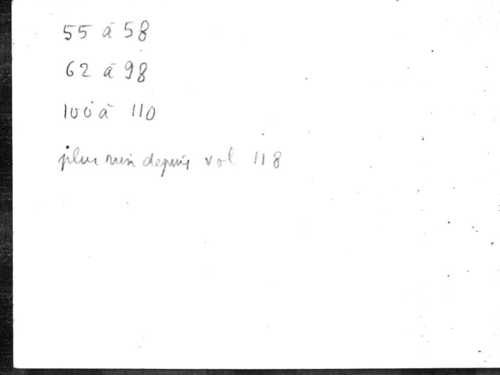 55 à 58
62 à 98
100 à 110
plus rien depuis vol 118